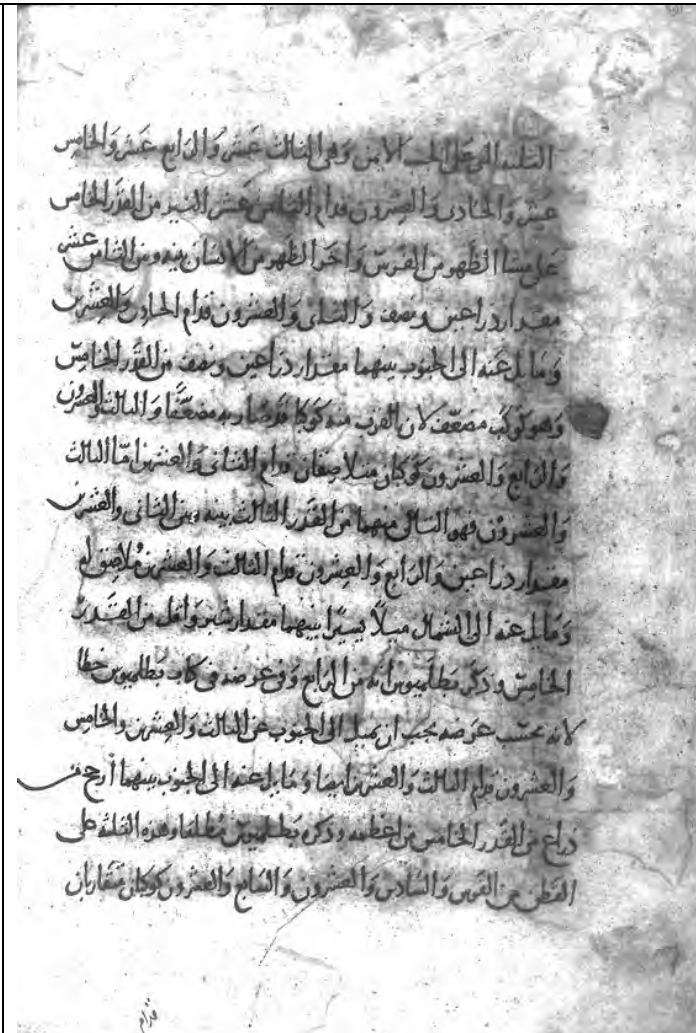 الثلثة التى على الجنب الايمن وهى الثالث عشر والرابع عشر والخامس
عشر والحادى والعشرون قدام الثامن عشر النير من القدر الخامس
على منشا الظهر من الفرس واخر الظهر من الانسان بينه وبين الثامن عشر
مقدار ذراعين ونصف والثانى والعشرون قدام الحادى والعشرين
ومايل عنه الى الجنوب بينهما مقدار ذراعين ونصف من القدر الخامس
وهو كوكب مضعّف لان بالقرب منه كوكبا قد صار به مضعّفا والثالث والعشرون
والرابع والعشرون كوكبان متلاصقان قدام الثانى والعشرين امّا الثالث
والعشرون فهو التالى منهما من القدر الثالث بينه وبين الثانى والعشرين
مقدار ذراعين والرابع والعشرون قدام الثالث والعشرين ملاصق له
ومايل عنه الى الشمال ميلا يسيرا بينهما مقدار شبر واقل من القدر
الخامس وذكر بطلميوس انه من الرابع ووقع عرضه فى كتاب بطلميوس خطا
لانه بحسب عرضه يجب ان يميل الى الجنوب عن الثالث والعشرين والخامس
والعشرون قدام الثالث والعشرين ايضا ومايل عنه الى الجنوب بينهما ارجح من
ذراع من القدر الخامس من اعظمه وذكره بطلميوس مطلقا وهذه الثلثة على
القطن من الفرس والسادس والعشرون والسابع والعشرون كوكبان متقاربان
قدام